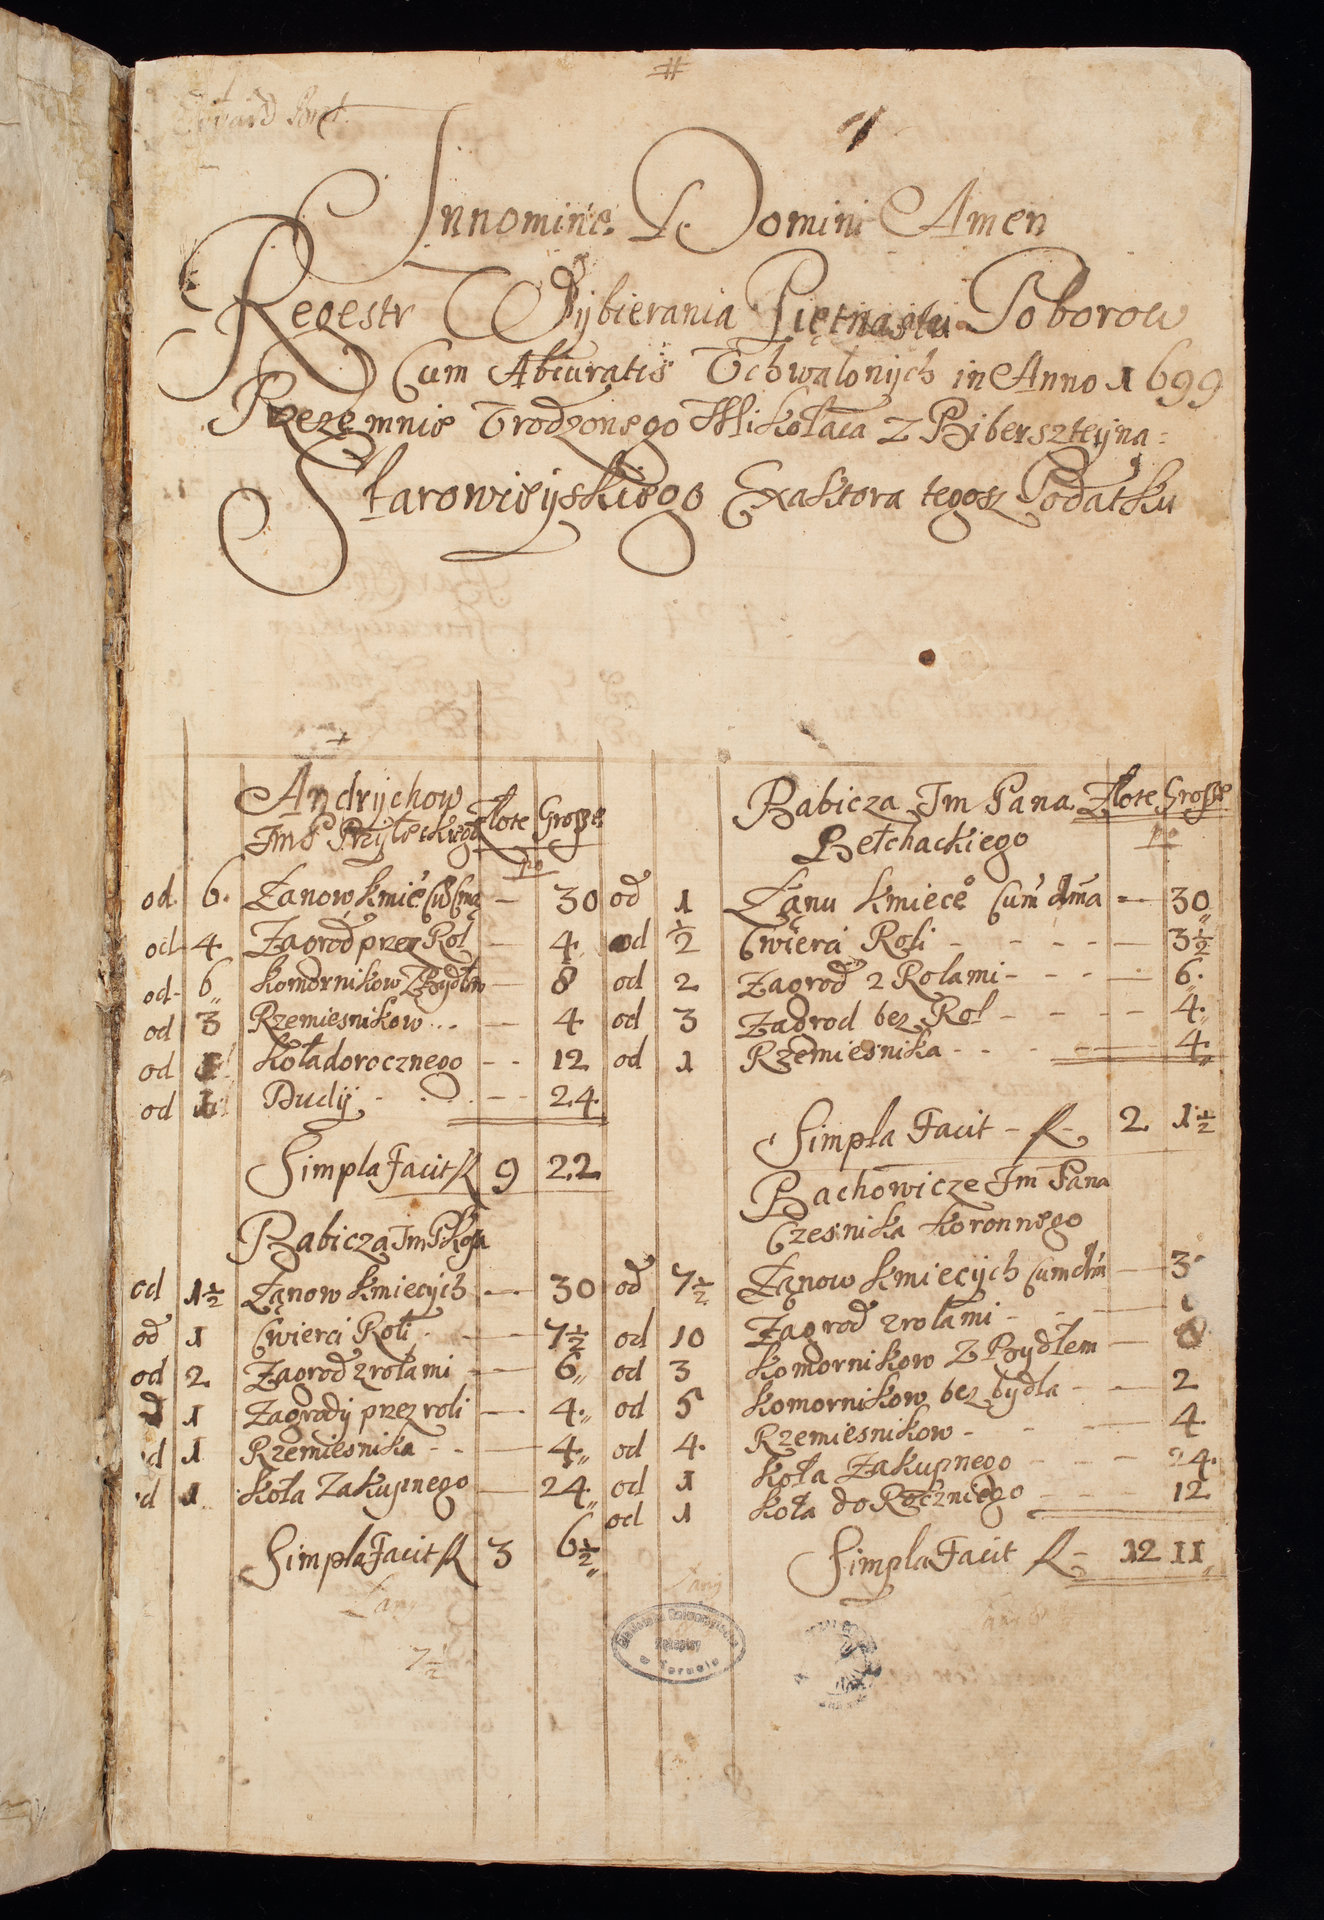 Innomine Domini Amen
Regestr Wÿbierania Piętnastu Poborow
Cum Abiuratis Uchwalonÿch in Anno 1699
Przezemnie Urodzonego Mikołaia Z Bibersztejna
Starowieÿskiego Exaktora tegosz Podatku
Andrÿchow Złote Grosze
po
od 6. Łanow kmie 30
od 4 Zagrod przez Rol 4
od 6 komornikow Z Bydłem 8
od 3 Rzemiesnikow 4
od 1 koła dorocznego 12
od 1 Dudÿ 24
Simpla Facit 9 22
Babicza
od 1½ Łąnow kmiecÿch 30
od 1 Cwierci Roli 7½
od 2 Zagrod z rołami 6
od 1 Zagrodÿ przez roli 4
od 1 Rzemiesnika 4
od 1 koła Zakupnego 24
Simpla Facit 3 6½
7½
Babicza Jm Pana Złote Grosze
Bełchackiego po
od 1 Łąnu kmiece Cum 30
od ½ Cwierci Roli 3½
od 2 Zagrod z Rolami 6
od 3 Zagrod bez Rol 4
od 1 Rzemiesnika 4
Simpla Facit 2 1½
Bachowicze Jm Pana
Czesnika koronnego
od 7½ Łąnow kmiecÿch
od 10 Zagrod z rołami
od 3 komornikow Z Bydłem 8
od 5 komornikow bez bydła 2
od 4 Rzemiesnikow 4
od 1 koła Zakupnego 24
od 1 koła do Roczniego 12
Simpla Facit 12 11